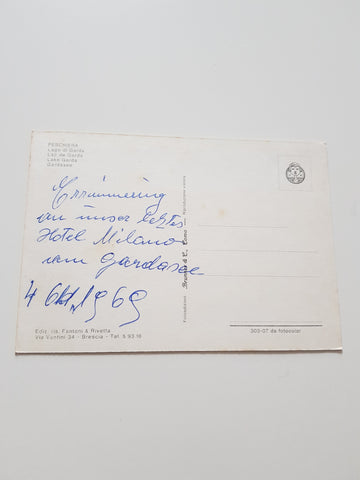 PESCHIERA
Lago di Garda
Lac de Garda
Lake Garda
Gardasee
Erinnerung
an unser letztes
Hotel Milano
am Gardasee
4 Okt. 1969
Ediz. ris. Fantoni & Rivetta
Via Vantini 34 - Brescia - Tel. 5 93 16
Fotoedizioni Brunner & C. Como Riproduzione vietata
303-07 da fotocolor